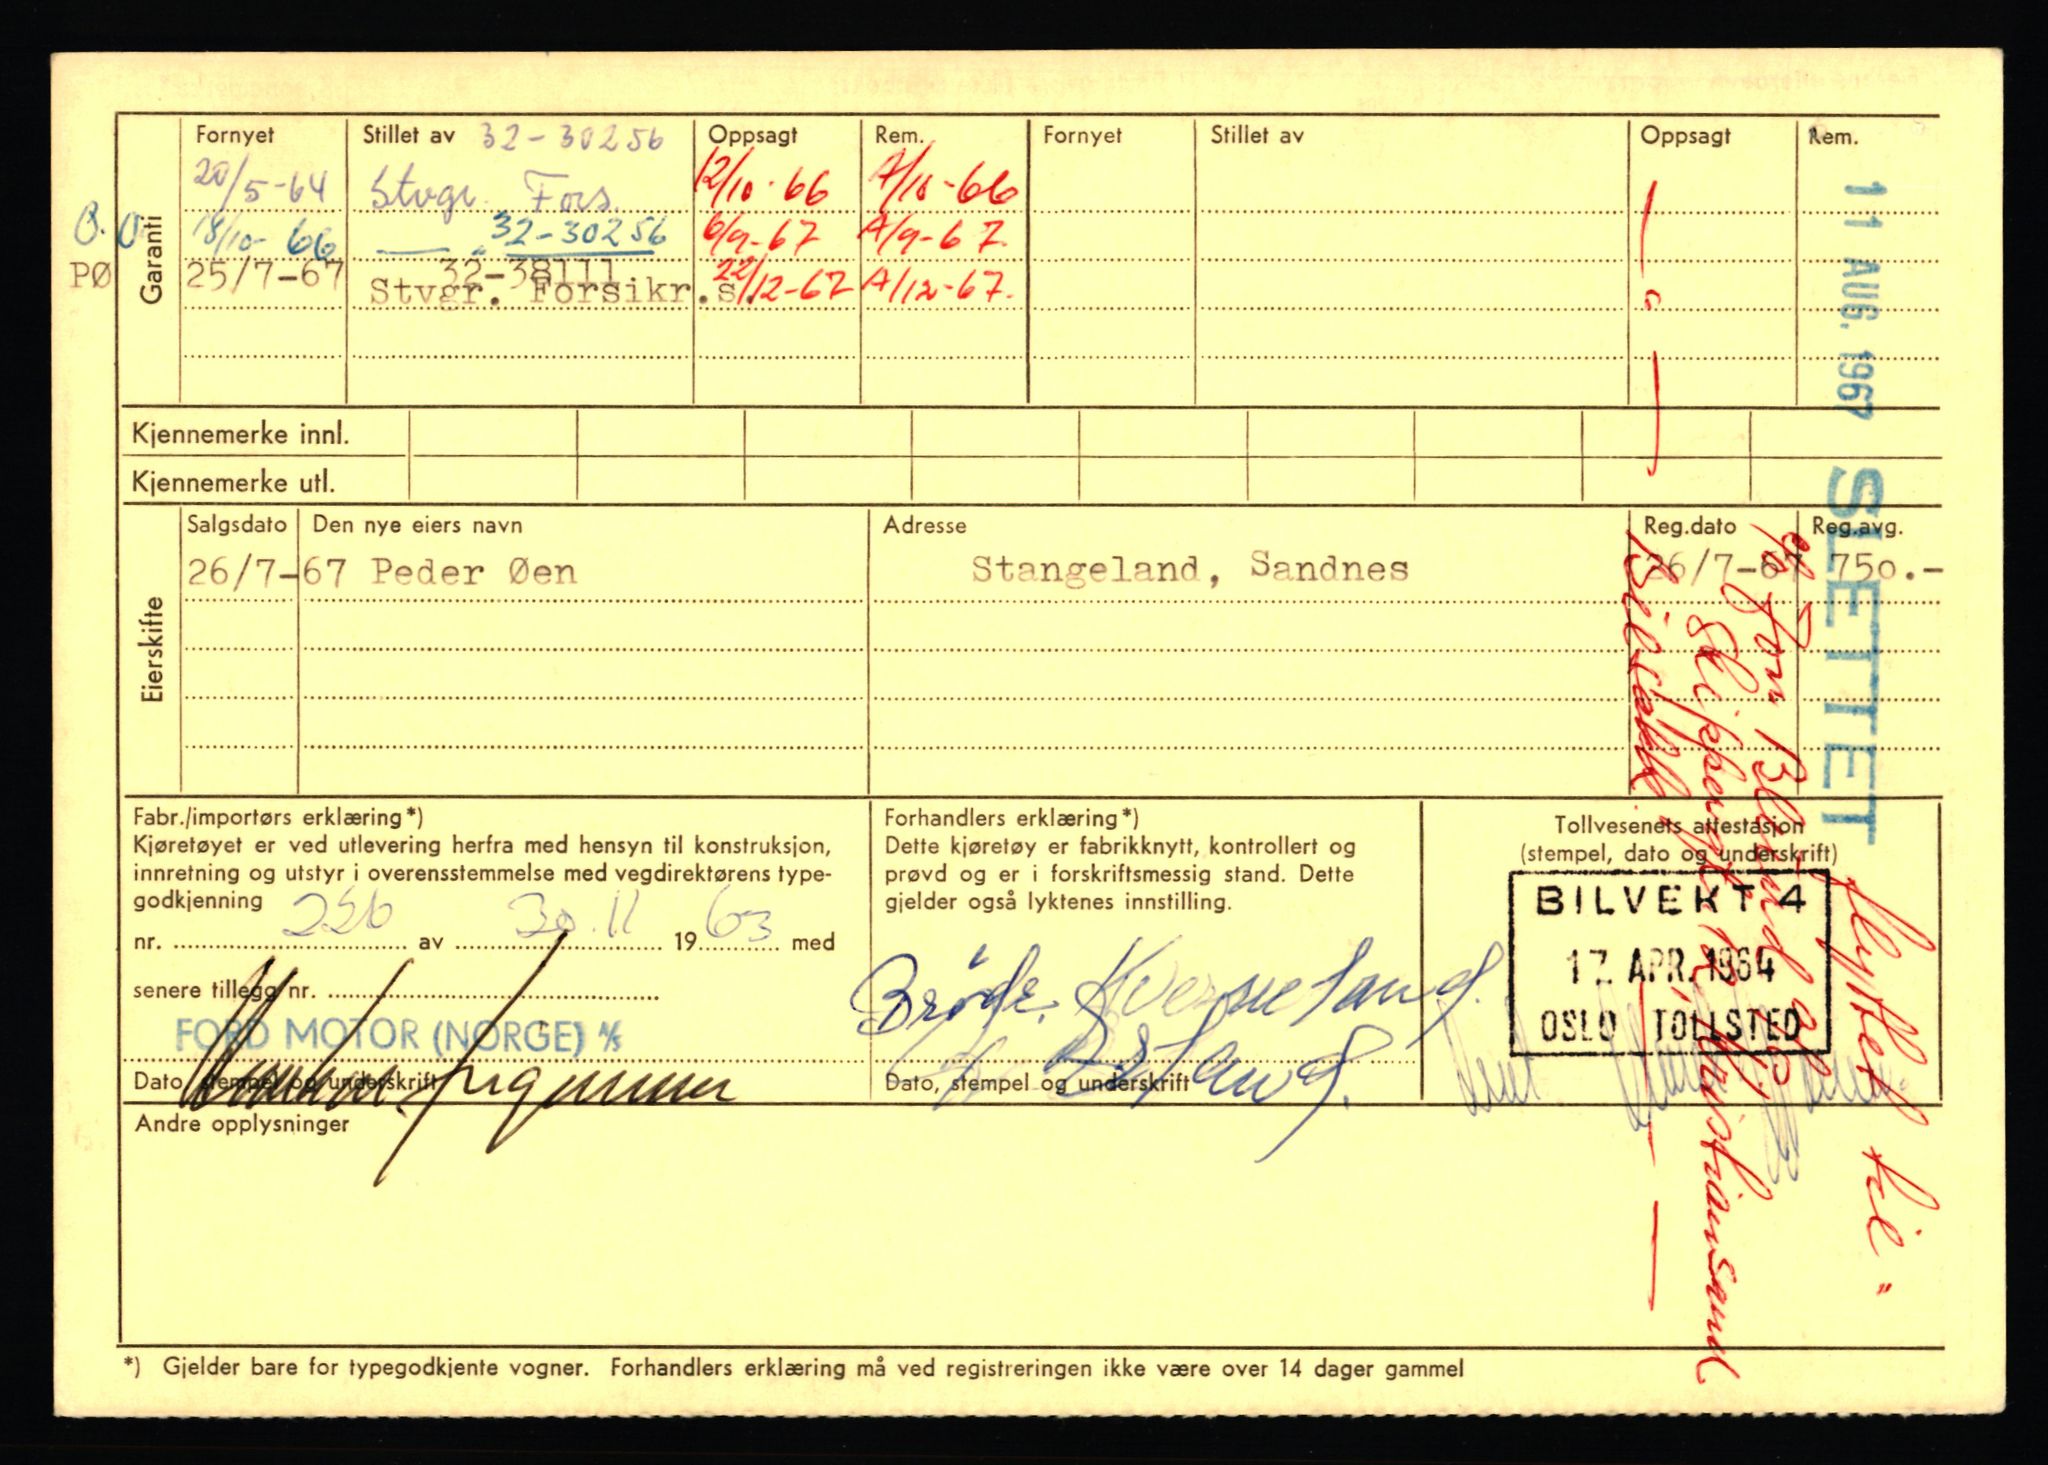 Fornyet Stillet av 32-30256 Oppsagt Rem. Fornyet Stillet av Oppsagt Rem.
20/5-64 Stvgr. Fors. 12/10-66 A/10-66
18/10-66 — " 32-30256 6/9-67 A/9-67.
PØ 25/7-67 32-38111 22/12-67 A/12-67.
Stvgr. Forsikr.s.
Garanti
Kjennemerke innl.
Kjennemerke utl.
Eierskifte
Salgsdato Den nye eiers navn Adresse Reg.dato Reg.avg.
26/7-67 Peder Øen Stangeland, Sandnes 26/7-67 750.-
11 AUG. 1967 SLETTET
flyttet til
Kristiansand
Fabr./importørs erklæring*)
Kjøretøyet er ved utlevering herfra med hensyn til konstruksjon,
innretning og utstyr i overensstemmelse med vegdirektørens type-
godkjenning
nr. 226 av 30.11 1963 med
senere tillegg nr.
FORD MOTOR (NORGE) A/S
Dato, stempel og underskrift
Forhandlers erklæring*)
Dette kjøretøy er fabrikknytt, kontrollert og
prøvd og er i forskriftsmessig stand. Dette
gjelder også lyktenes innstilling.
Brødr. Kverneland.
Dato, stempel og underskrift
Tollvesenets attestasjon
(stempel, dato og underskrift)
BILVEKT 4
17 APR. 1964
OSLO TOLLSTED
Andre opplysninger
*) Gjelder bare for typegodkjente vogner. Forhandlers erklæring må ved registreringen ikke være over 14 dager gammel